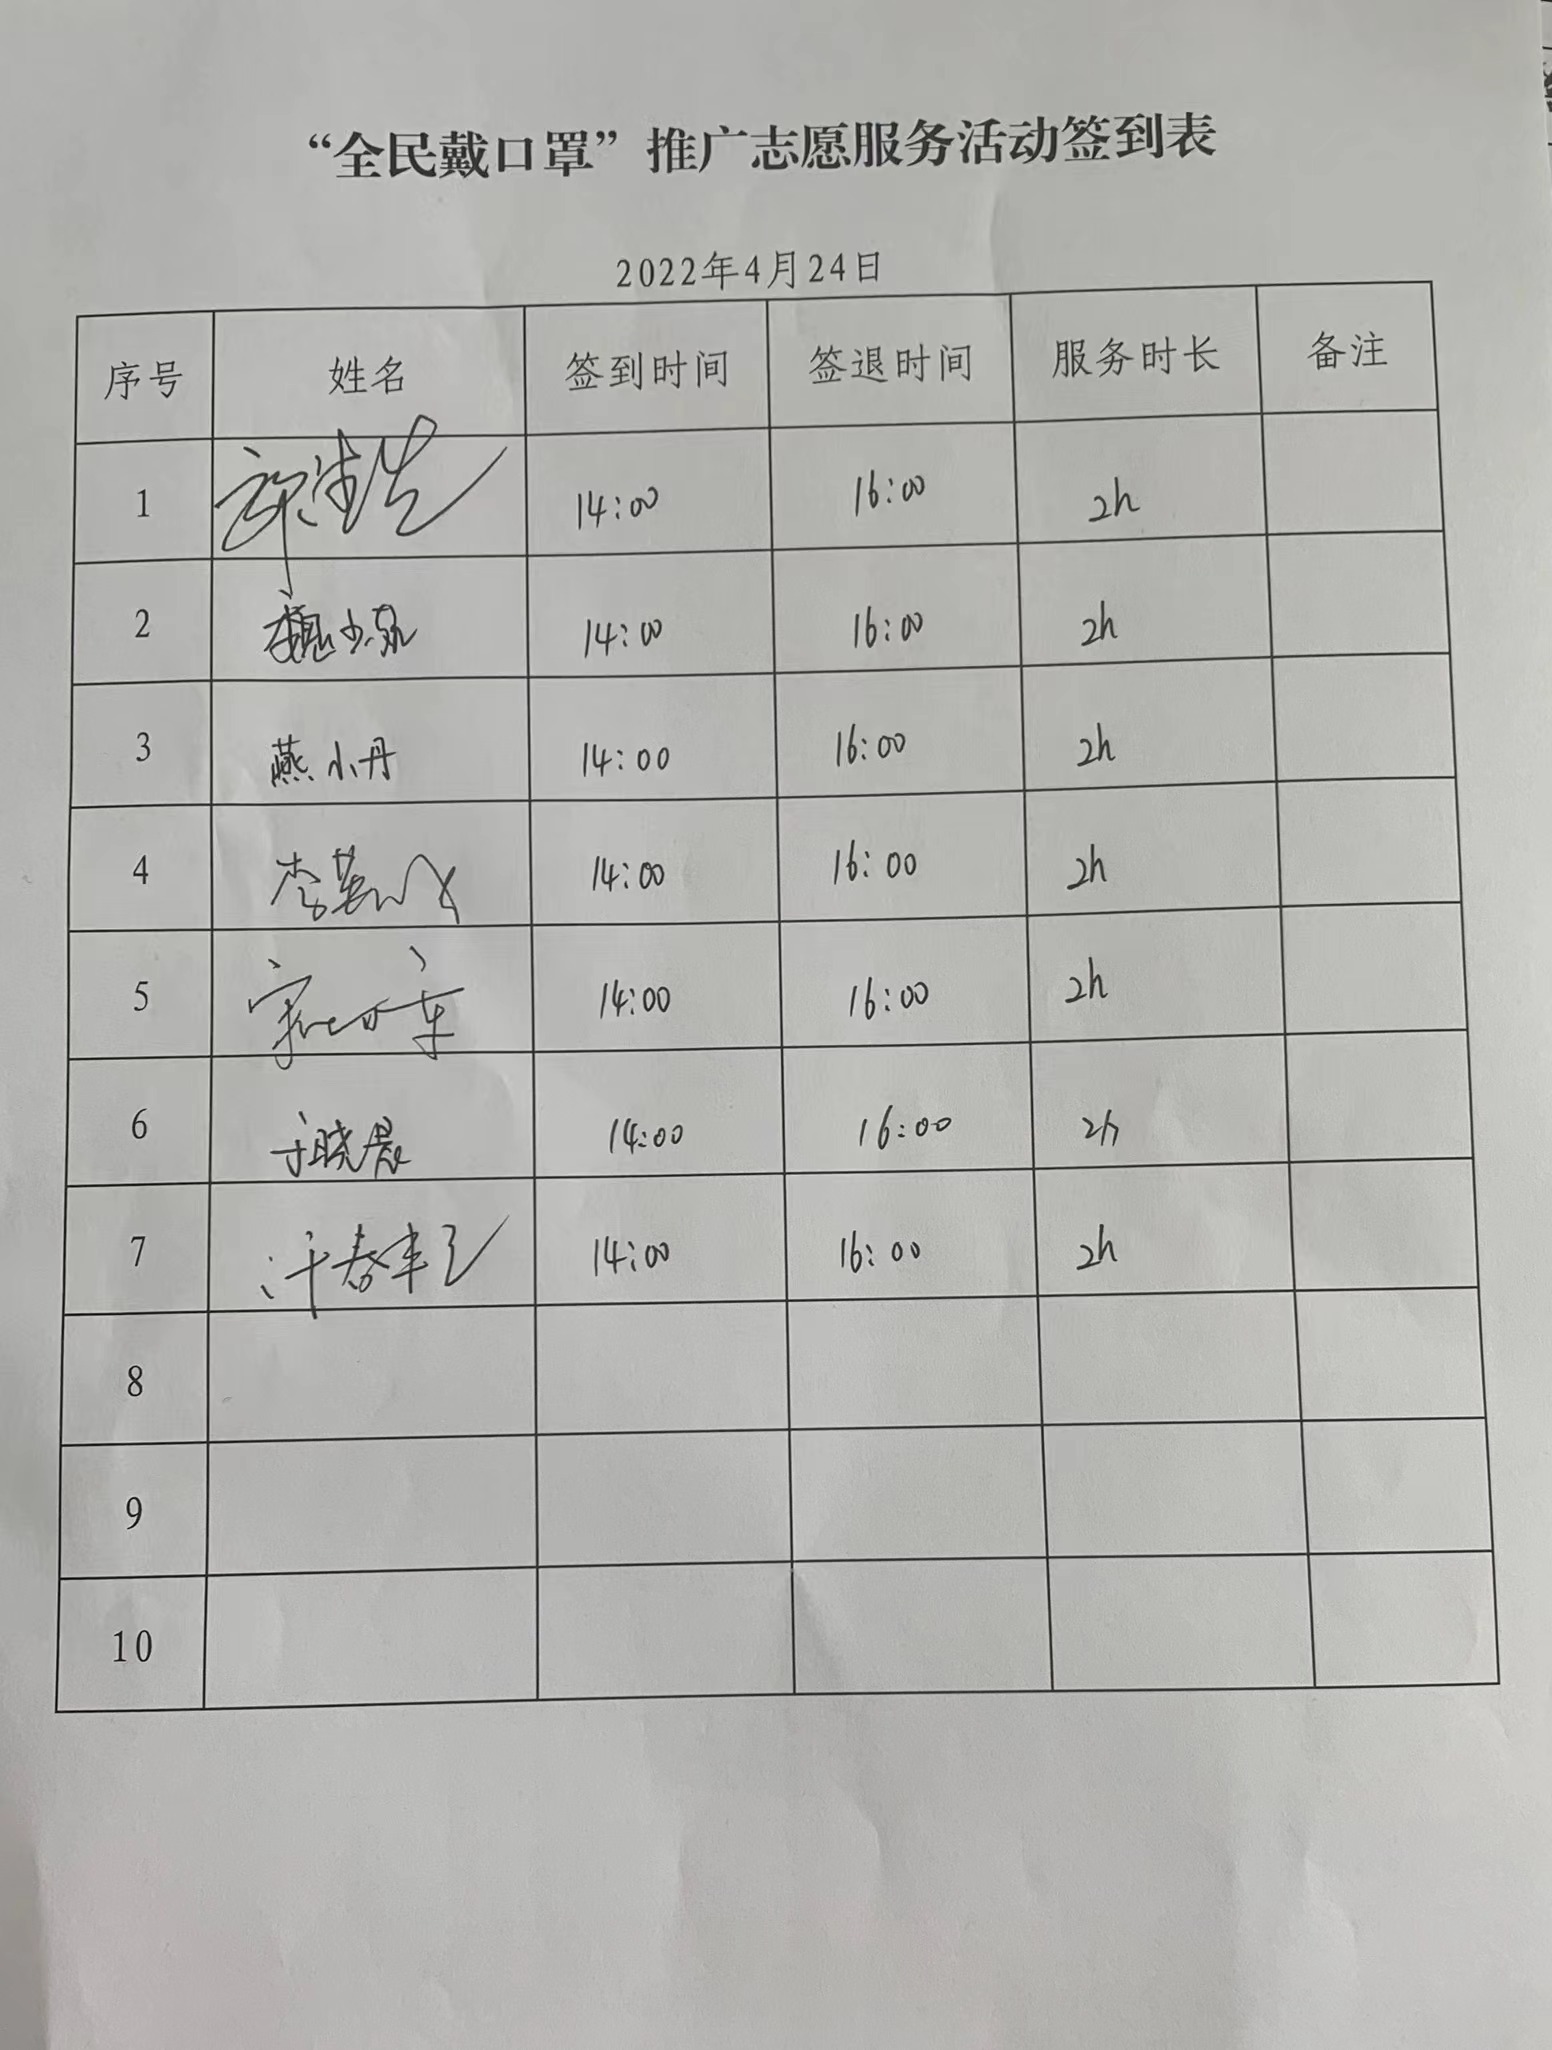 “全民戴口罩”推广志愿服务活动签到表
2022年4月24日
序号 姓名 签到时间 签退时间 服务时长 备注
1 14:00 16:00 2h
2 魏 14:00 16:00 2h
3 燕小丹 14:00 16:00 2h
4 李英 14:00 16:00 2h
5 14:00 16:00 2h
6 于晓晨 14:00 16:00 2h
7 春 14:00 16:00 2h
8
9
10